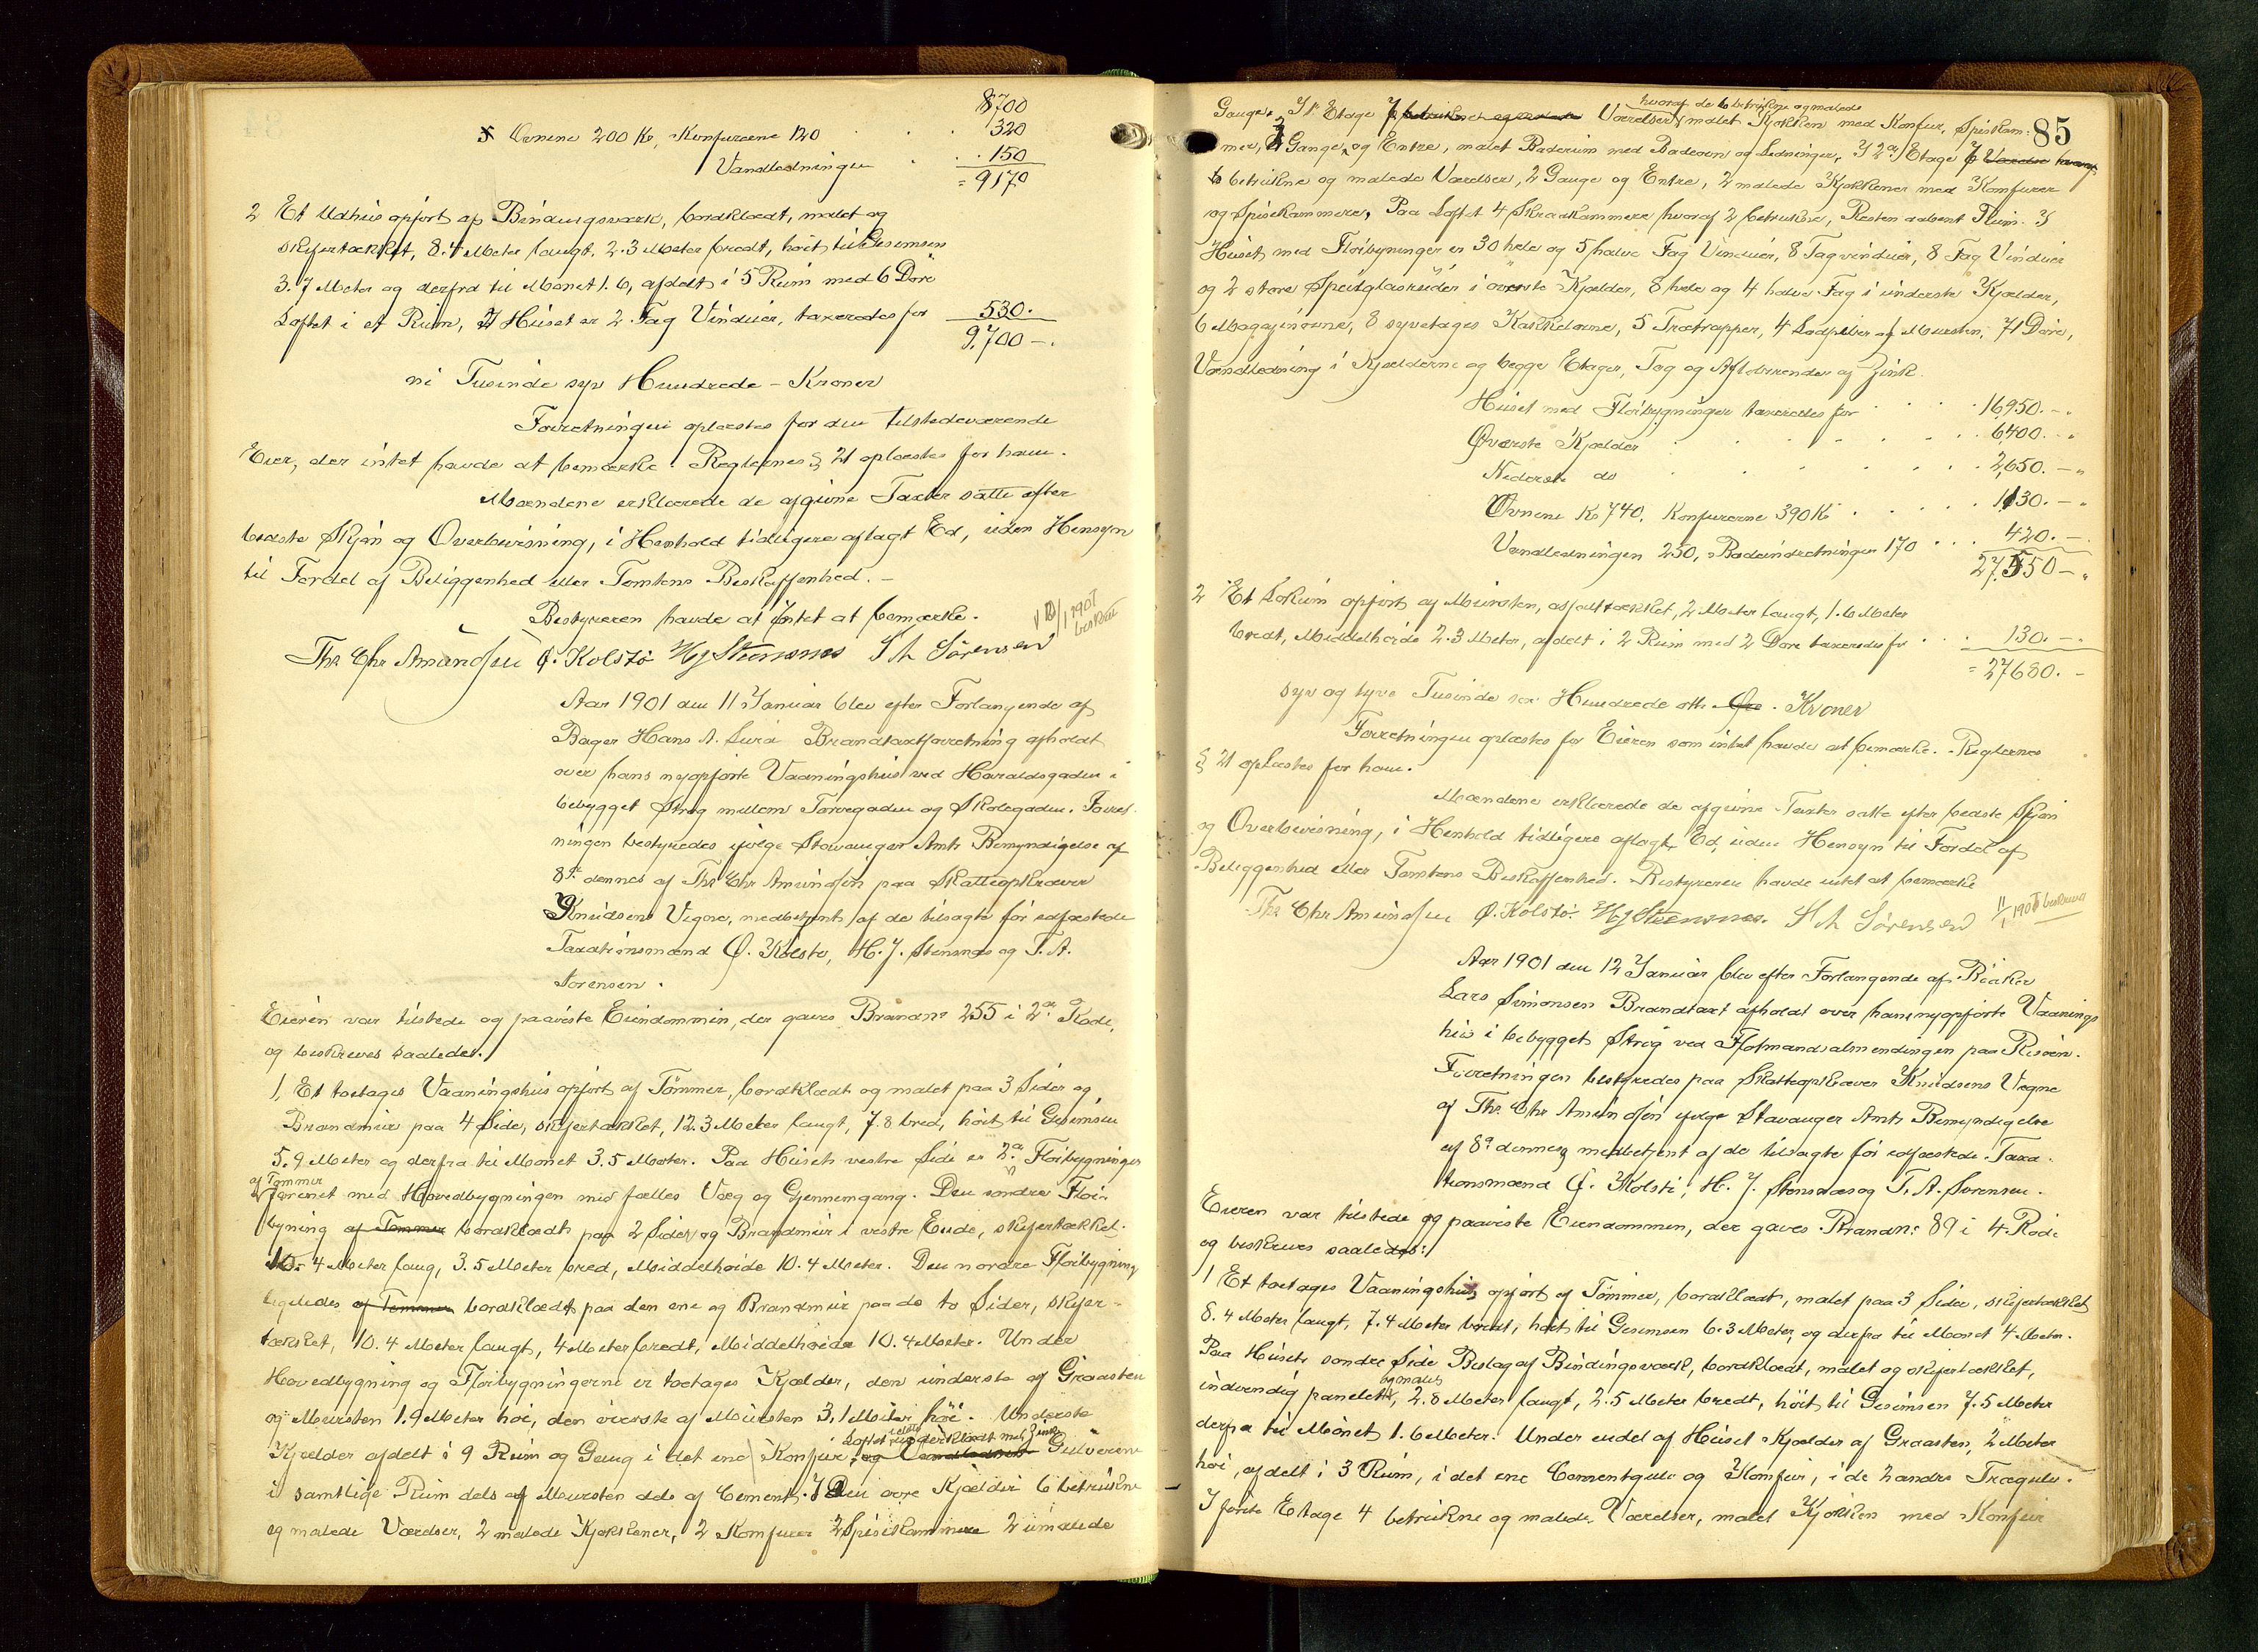 8700
5 Ovnene 200 Kr, Komfurerne 120 . . . 320
Vandledningen . . . 150
= 9170
2 Et Udhus opført af Bindingsværk, bordklædt, malet og
skifertækket, 8.4 Meter langt, 2.3 Meter bredt, høit til Gesimsen
3.7 Meter og derfra til Mønet 1.6, afdelt i 5 Rum med 6 Døre
Loftet i et Rum, I Huset er 2 Fag Vinduer, taxeredes for 530.
9,700 -.
ni Tusinde syv Hundrede - Kroner
Forretningen oplæstes for den tilstedeværende
Eier, der intet havde at bemærke. Reglernes § 21 oplæstes for ham.
Mændene erklærede de afgivne Taxter satte efter
bedste Skjøn og Overbevisning, i Henhold tidligere aflagt Ed, uden Hensyn
til Fordel af Beliggenhed eller Tomtens Beskaffenhed. -
Bestyreren havde at Intet at bemærke.
Ths Chr Amundsen Ø. Kolstø HJ Stensnes T A Sørensen
Aar 1901 den 11 Januar blev efter Forlangende af
Bager Hans A. Lura Brandtaxtforretning afholdt
over hans nyopførte Vaaningshus ved Haraldsgaden i
bebygget Strøg mellem Torvegaden og Skolegaden. Forret-
ningen bestyredes ifølge Stavanger Amts Bemyndigelse af
8de dennes af Ths Chr Amundsen paa Skatteopkræver
Knudsens Vegne, medbetjent af de tilsagte før edfæstede
Taxationsmænd Ø. Kolstø, H. J. Stensnæs og T. A.
Sørensen.
Eieren var tilstede og paaviste Eiendommen, der gaves Brandno 255 i 2a Rode,
og beskreves saaledes:
1, Et toetages Vaaningshus opført af Tømmer, bordklædt og malet paa 3 Sider og
Brandmur paa 4 Side, skifertækket, 12.3 Meter langt, 7.8 bred, høit til Gesimsen
5.9 Meter og derfra til Mønet 3.5 Meter. Paa Husets vestre Side er 2a Fløibygninger
af Tømmer
forenet med Hovedbygningen med fælles Væg og Gjennemgang. Den søndre Fløi-
bygning af Tømmer bordklædt paa 2 Sider og Brandmur i vestre Ende, skifertækket.
10.4 Meter lang, 3.5 Meter bred, Middelhøide 10.4 Meter. Den nordre Fløibygning
ligeledes af Tømmer bordklædt paa den ene og Brandmur paa de to Sider, skifer-
tækket, 10.4 Meter langt, 4 Meter bredt, Middelhøide 10.4 Meter. Under
Hovedbygning og Fløibygningerne er toetages Kjælder, den underste af Graasten
og Mursten 1.9 Meter høi, den øverste af Mursten 3,1 Meter høi. Underste
Loftet underklædt med Zink
Kjælder afdelt i 9 Rum og Gang i det ene Komfur, og Vandledning Gulvene
i samtlige Rum dels af Mursten dels af Cement. I Den øvre Kjælder 6 betrukne
og malede Værelser, 2 malede Kjøkkener, 2 Komfurer 2 Spisekammere 2 umalede
85
hvoraf de 6 betrukne og malede
Gange, I 1ste Etage 7 betrukne og malede Værelser malet Kjøkken med Komfur, Spisekam-
mer, 2 Gange, og Entre, malet Baderum med Badeovn og Ledninger, I 2a Etage 7 Værelser hvoraf
6 betrukne og malede Værelser, 2 Gange og Entre, 2 malede Kjøkkener med Komfurer
og Spisekammere, Paa Loftet 4 Skraakammere hvoraf 2 betrukne, Resten aabent Rum. I
Huset med Fløibyninger er 30 hele og 5 halve Fag Vinduer, 8 Tagvinduer, 8 Fag Vinduer
og 2 store Speilglasruder i øverste Kjælder, 8 hele og 4 halve Fag i underste Kjælder,
6 Magazinovne, 8 syvetages Kakkelovne, 5 Trætrapper, 4 Lodpiber af Mursten, 71 Døre,
Vandledning i Kjælderne og begge Etager, Tag og Afløbsrender af Zink.
Huset med Fløibygninger taxeredes for . . . 16950.-"
Øverste Kjælder . . . 6,400.-"
Nederste do . . . 2,650.-"
Ovnene Kr 740, Komfurerne 390 Kr . . . 1130.-"
Vandledningen 250, Badeindretningen 170 . . . 420.-
27,550 - "
2 Et Lokum opført af Mursten, asfalttækket, 2 Meter langt, 1.6 Meter
bredt, Middelhøide 2.3 Meter, afdelt i 2 Rum med 2 Døre taxeredes for . . . 130.-
= 27680.-
syv og tyve Tusinde sex Hundrede otti Øre. Kroner
Forretningen oplæstes for Eieren som intet havde at bemærke. Reglernes
§ 21 oplæstes for ham.
Mændene erklærede de afgivne Taxter satte efter bedste Skjøn
og Overbevisning, i Henhold tidligere aflagt Ed, uden Hensyn til Fordel af
Beliggenhed eller Tomtens Beskaffenhed. Bestyreren havde intet at bemærke
Ths Chr Amundsen Ø. Kolstø. HJ Stensnes. T A Sørensen 11/1 1901 beskrevet
Aar 1901 den 12 Januar blev efter Forlangende af Bøcker
Lars Simonsen Brandtaxt afholdt over hans nyopførte Vaanings
hus i bebygget Strøg ved Flotmandsalmendingen paa Risøen.
Forretningen bestyredes paa Skatteopkræver Knudsens Vegne
af Ths Chr Amundsen ifølge Stavanger Amts Bemyndigelse
af 8de dennes, medbetjent af de tilsagte før edfæstede Taxa-
tionsmænd Ø. Kolstø, H. J. Stensnæs og T. A. Sørensen.
Eieren var tilstede og paaviste Eiendommen, der gaves Brandno 89 i 4 Rode
og beskreves saaledes:
1 Et toetages Vaaningshus opført af Tømmer, bordklædt, malet paa 3 Sider, skifertækket
8.4 Meter langt, 7.4 Meter bredt, høit til Gesimsen 6.3 Meter, og derfra til Mønet 4 Meter.
Paa Husets søndre Side Bislag af Bindingsværk, bordklædt, malet og skifertækket,
og malet
indvendig panelet, 2.8 Meter langt, 2.5 Meter bredt, høit til Gesimsen 7.5 Meter
derfra til Mønet 1.6 Meter. Under endel af Huset Kjælder af Graasten, 2 Meter
høi, afdelt i 3 Rum, i det ene Cementgulv og Komfur, i de 2 andre Trægulv.
I første Etage 4 betrukne og malede Værelser, malet Kjøkken med Komfur